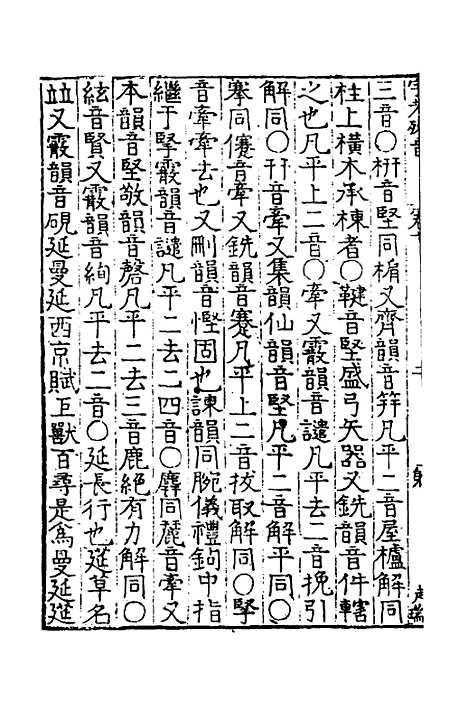 三音〇枅音堅同楄又齊韻音笄凡平二音屋櫨解同
柱上橫木承棟者〇鞬音堅盛弓矢器又銑韻音件轄
之也凡平上二音〇牽又霰韻音譴凡平去二音挽引
解同〇幵音牽又集韻仙韻音堅凡平二音解平同〇
搴同㩃音牽又銑韻音蹇凡平上二音拔取解同〇掔
音牽牽去也又刪韻音慳固也諫韻同腕儀禮鉤中指
繼于掔霰韻音譴凡平二去二四音〇麉同麗音牽又
本韻音堅敬韻音磬凡平二去三音鹿絕有力解同〇
絃音賢又霰韻音絢凡平去二音〇延長行也莚草名
竝又霰韻音硯延曼延西京賦巨獸百尋是爲曼延莚